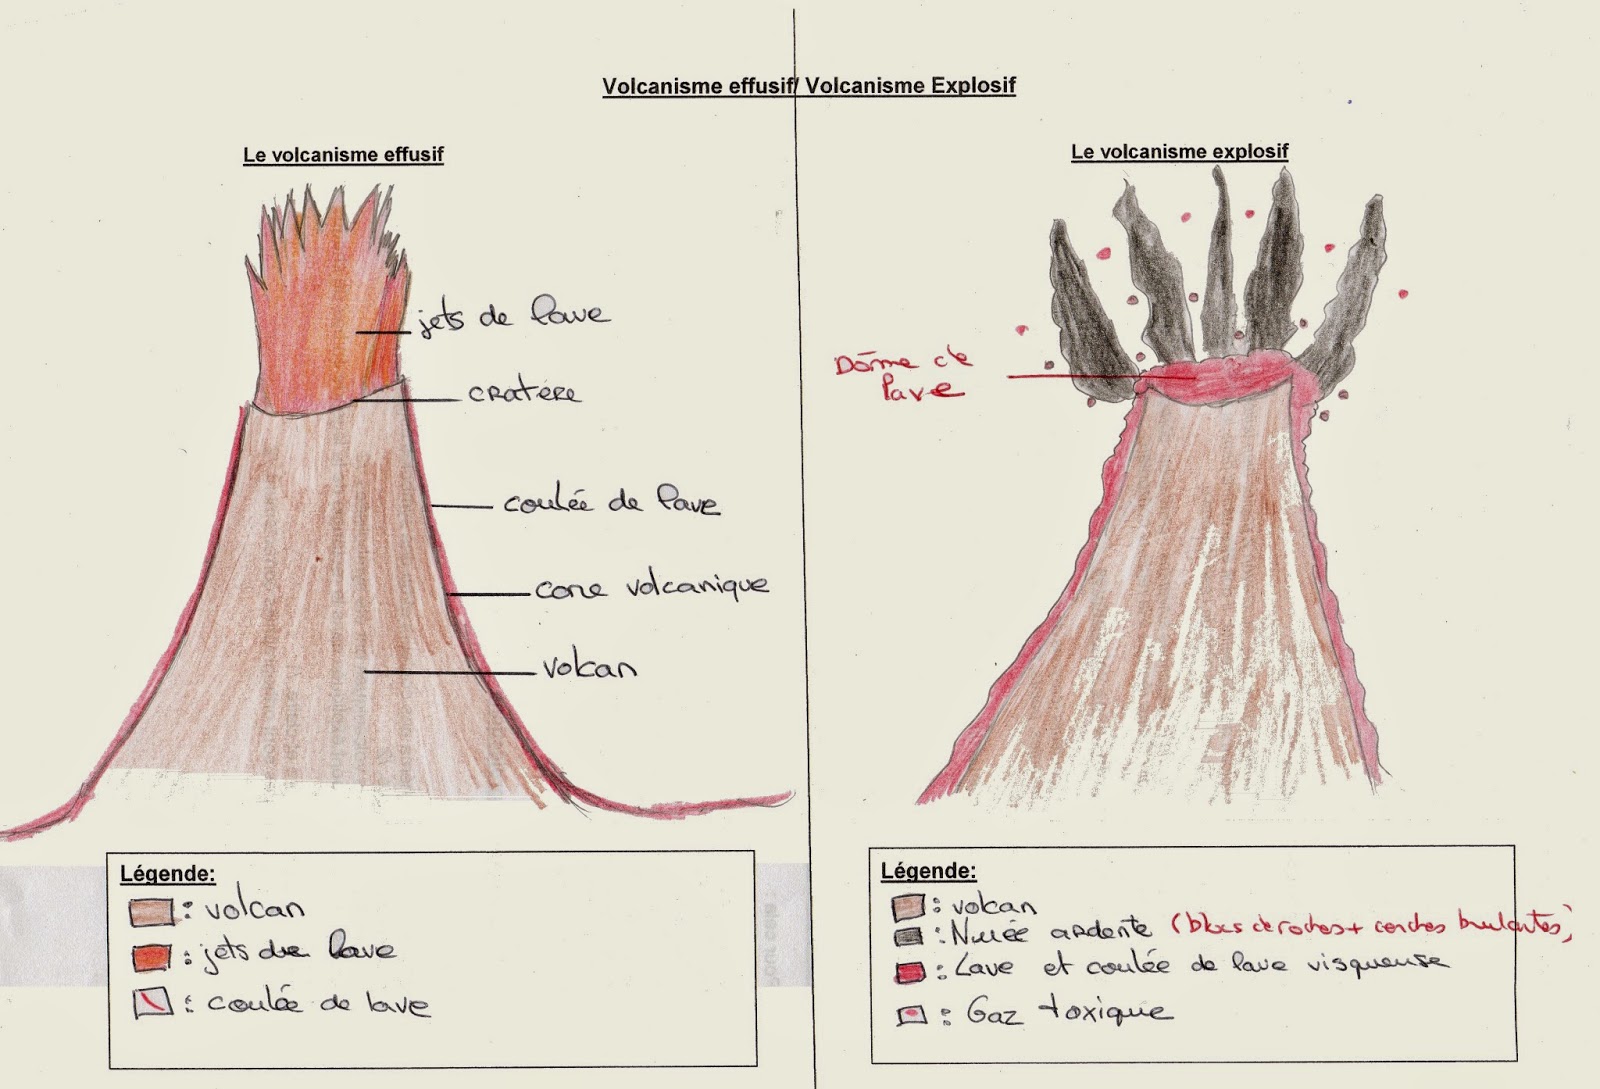 Volcanisme effusif/ Volcanisme Explosif
Le volcanisme effusif
jets de lave
cratère
coulée de lave
cone volcanique
volcan
Légende:
: volcan
: jets de lave
: coulée de lave
Le volcanisme explosif
Dôme de
lave
Légende:
: volcan
: Nuée ardente (blocs de roches + cendres brulantes)
: Lave et coulée de lave visqueuse
: Gaz toxique